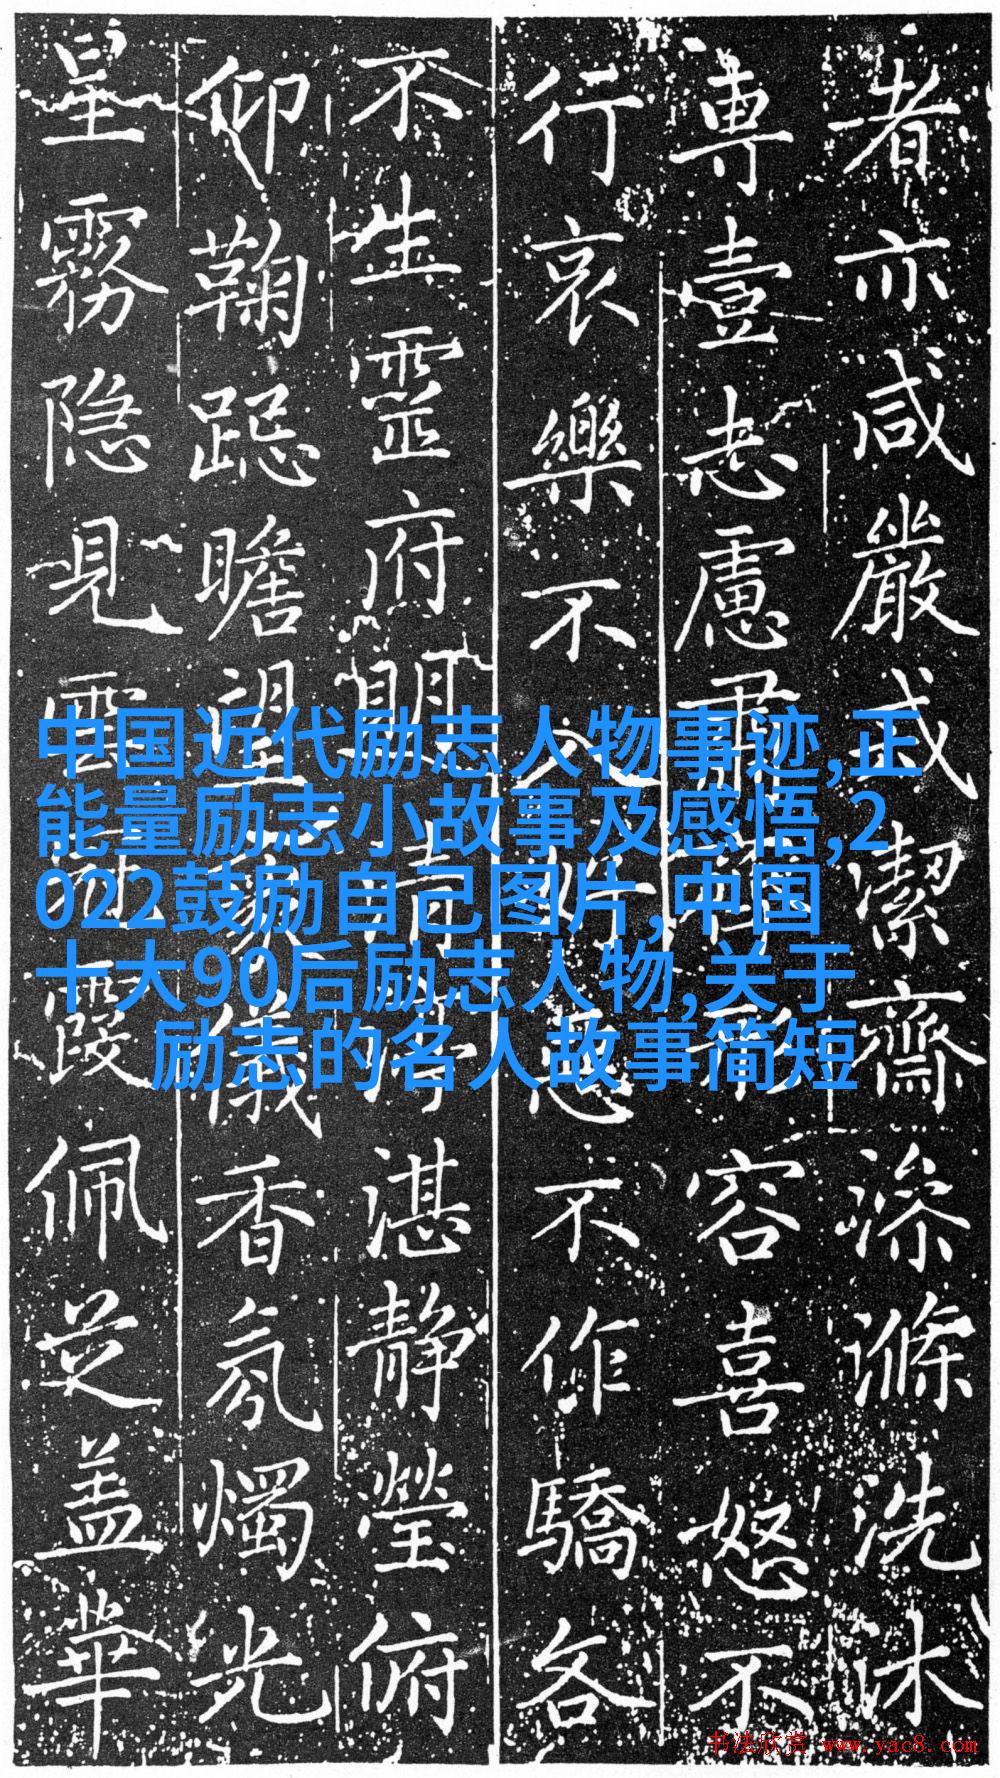 者亦咸嚴戒潔齋澡滌洗沐
専壹志慮肅容喜怒不
行哀樂不惡不作驕各
不生靈府閒清湛静瑩俯
仰鞠跽瞻望儀香氛燭光
星霧隐見雲霞佩芝盖華
中国近代励志人物事迹,正
能量励志小故事及感悟,2
022鼓励自己图片,中国
十大90后励志人物,关于
励志的名人故事简短
书法欣赏 www.yac8.com